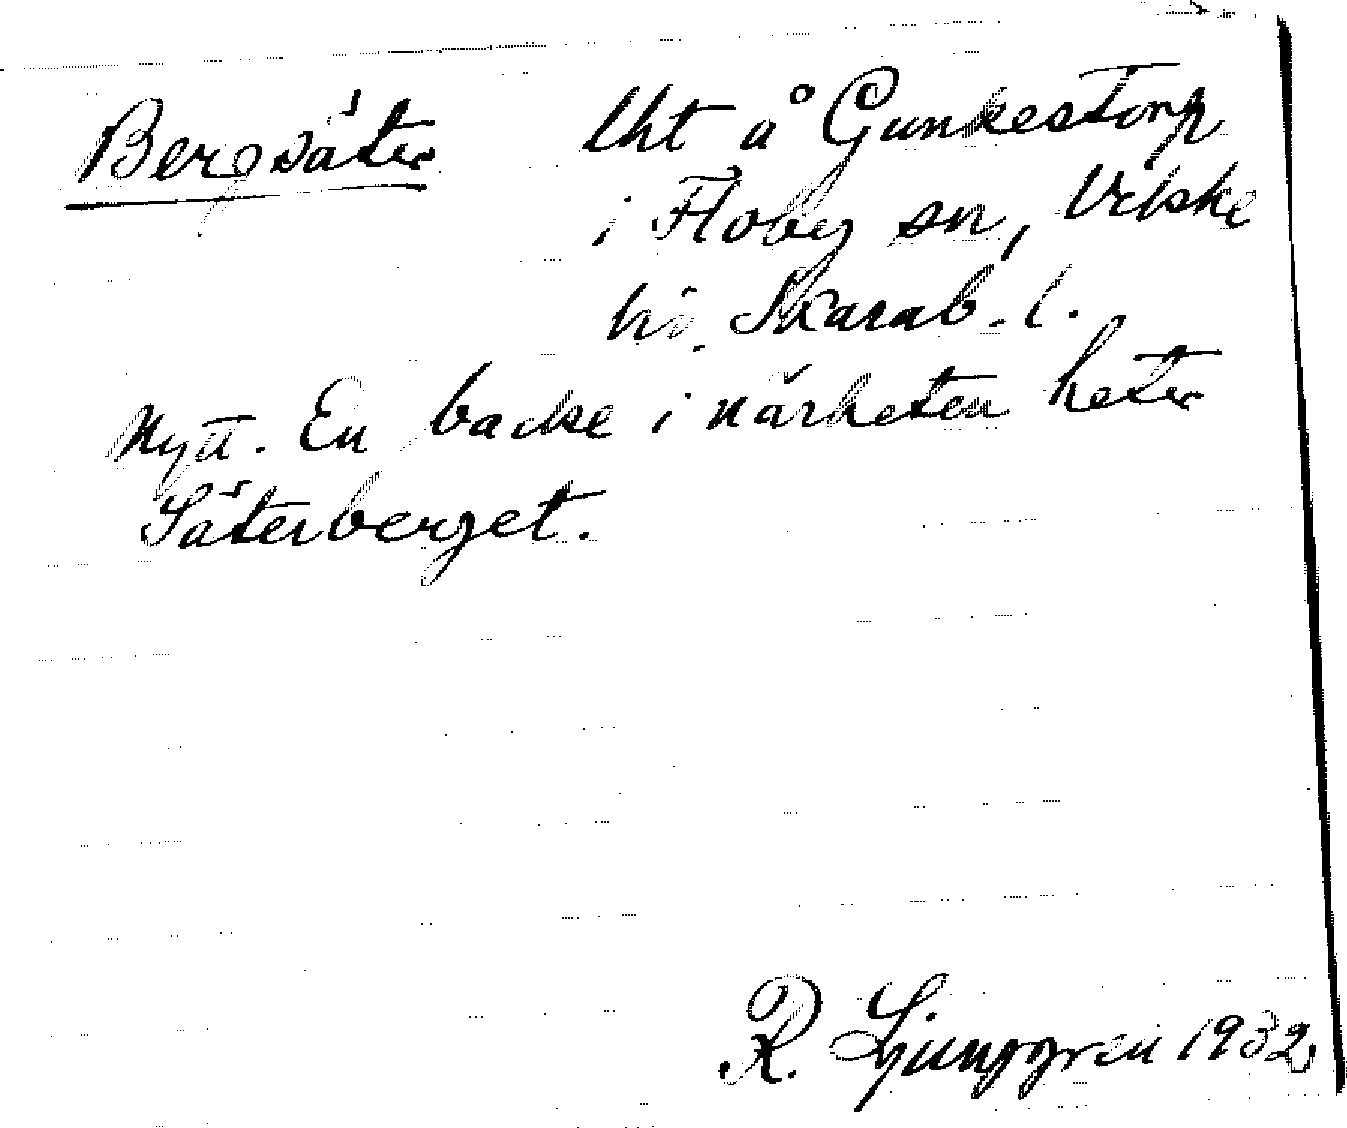 Bergsäter lht å Gunkestorp
i Floby sn, Vilske
hd. Skarab. l.
Nytt. En backe i närheten heter
Säterberget.
R. Ljunggren 1932